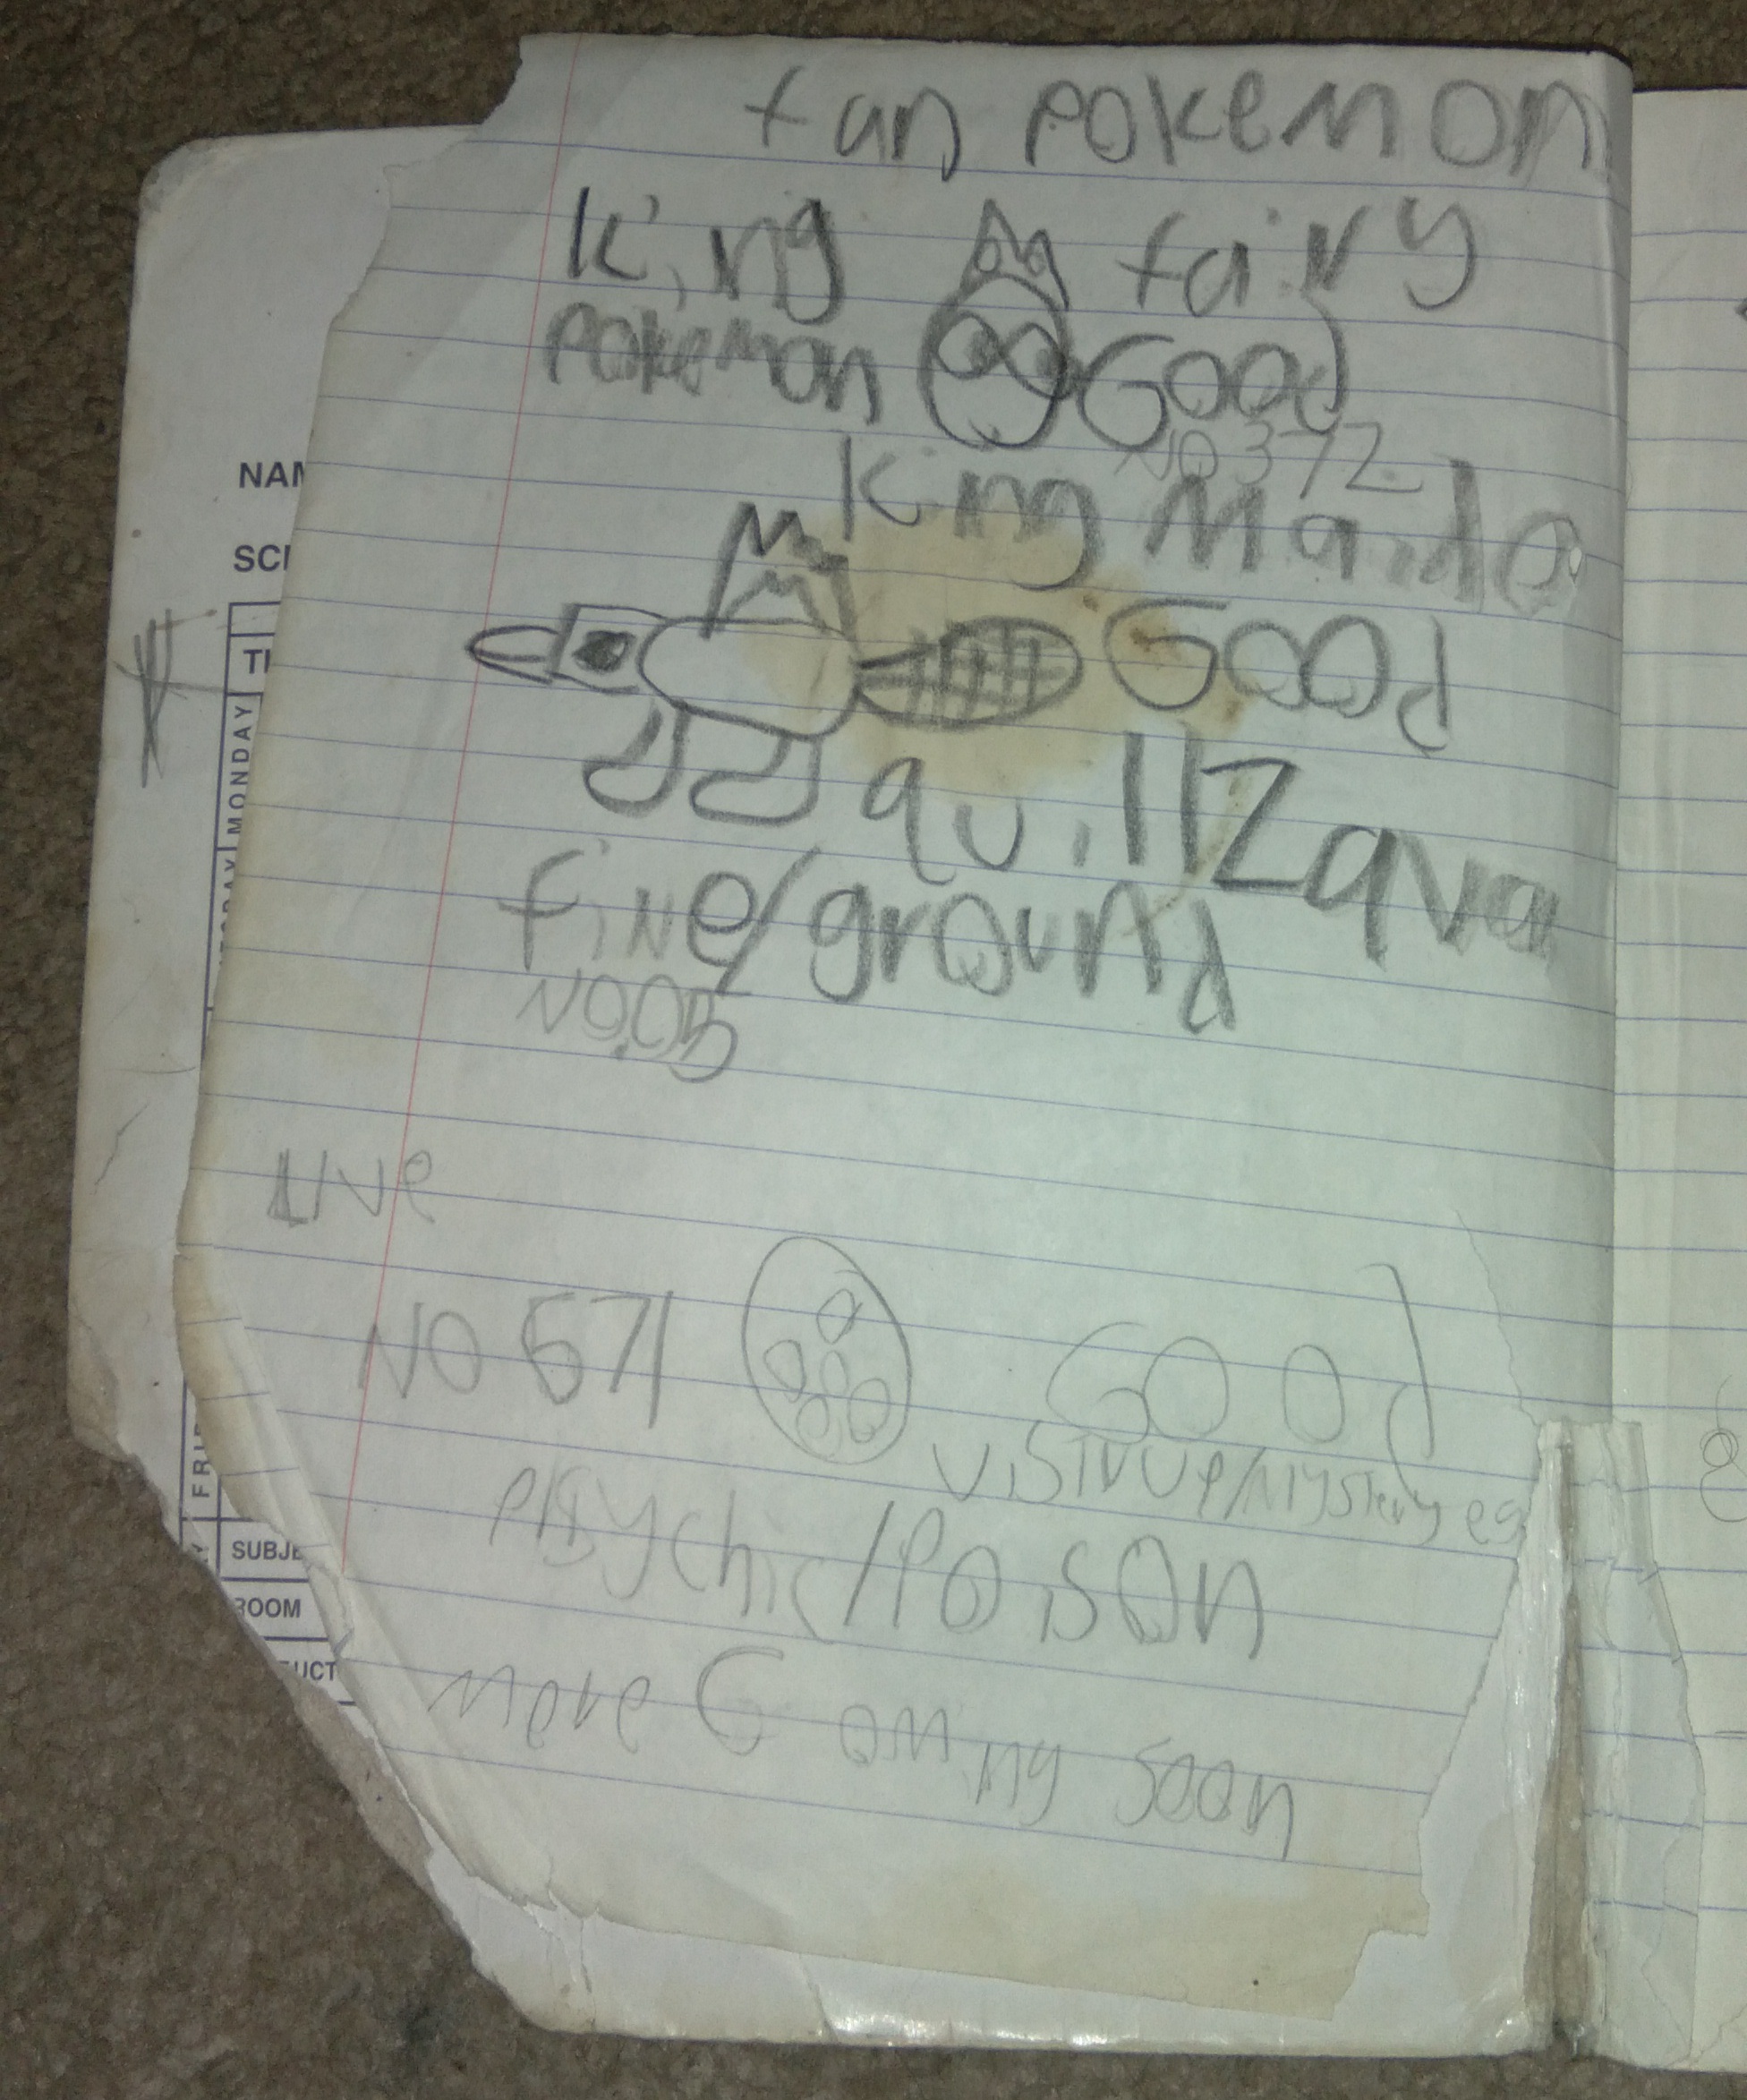 fan pokemon
king fairy
pokemon Good
NO 372
king Maido
Good
quillzava
fire/ground
NO.05
Live
NO 671 Good
visirve/Mystery eg
psychic/Poison
More Coming soon
NAM
SCH
MONDAY
FRID
SUBJE
ROOM